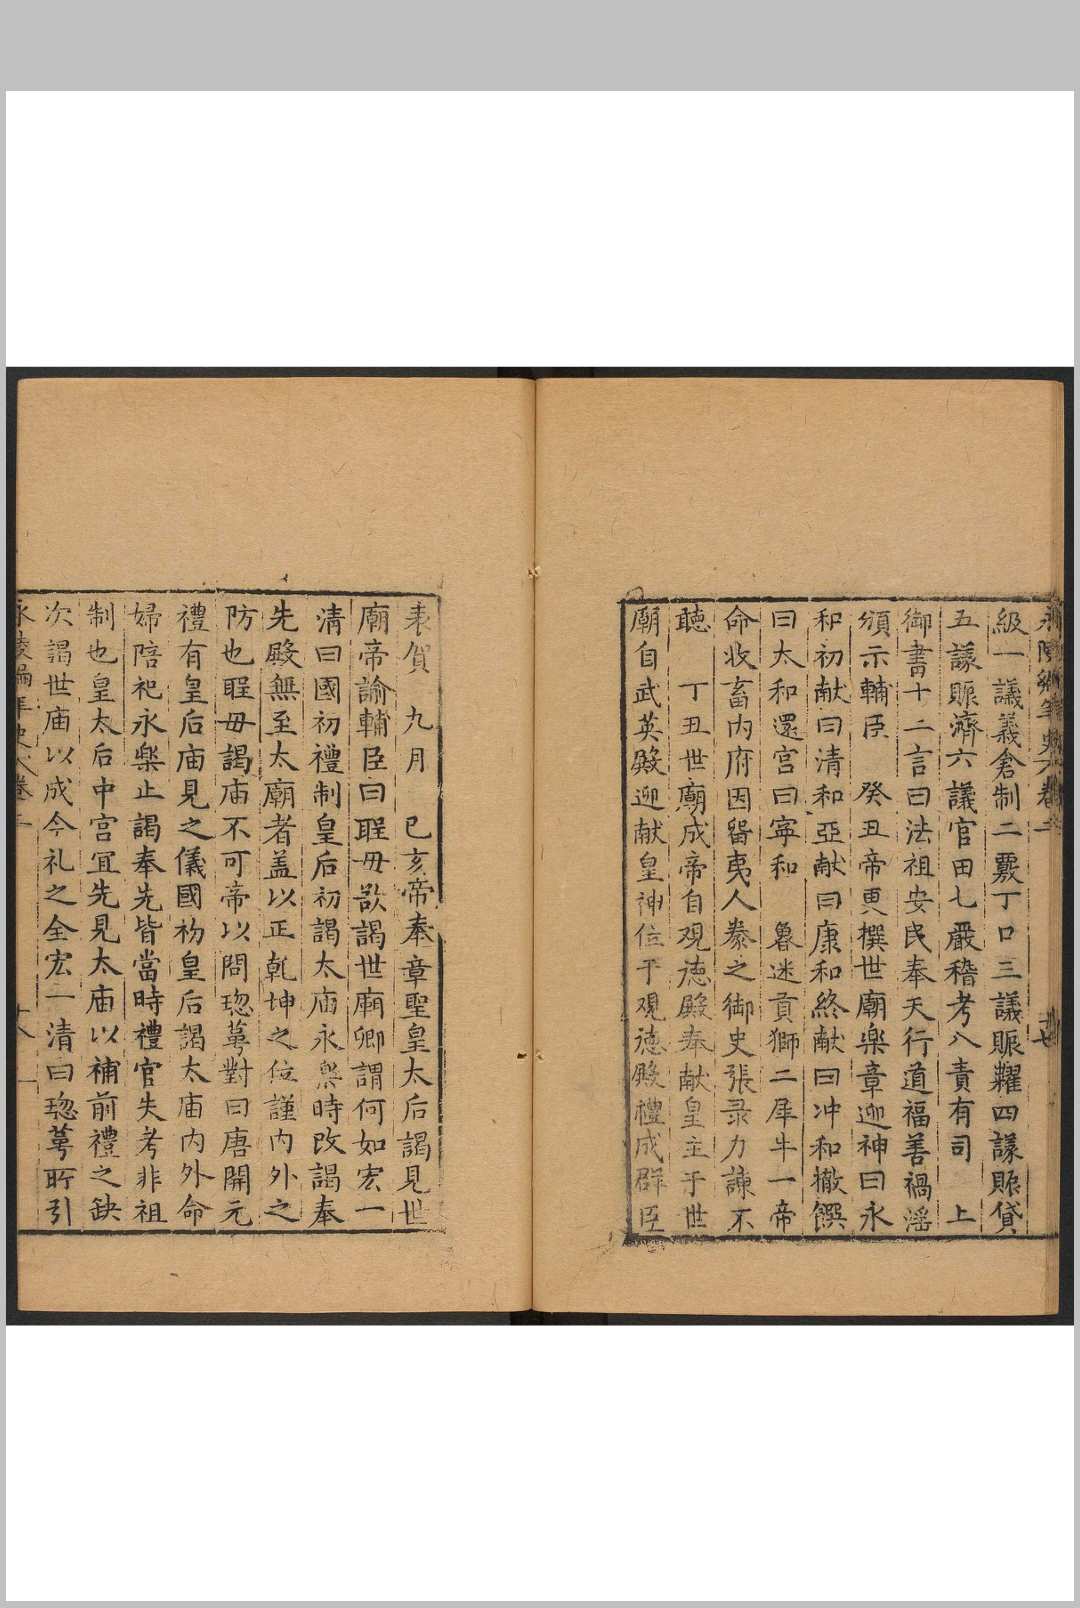 級一議義倉制二覈丁口三議賑糶四議賑貸
五議賑濟六議官田七嚴稽考八責有司　上
御書十二言曰法祖安民奉天行道福善禍淫
頒示輔臣　癸丑帝更撰世廟樂章迎神曰永
和初献曰清和亞献曰康和終献曰冲和撤饌
曰太和還宮曰寧和　魯迷貢獅二犀牛一帝
命收畜内府因留夷人豢之御史張录力諫不
聽　丁丑世廟成帝自观德殿奉献皇主于世
廟自武英殿迎献皇神位于观德殿禮成群臣
表賀　九月　己亥帝奉章聖皇太后謁見世
廟帝諭輔臣曰聖母欲謁世廟卿謂何如宏一
清曰國初禮制皇后初謁太廟永樂時改謁奉
先殿無至太廟者盖以正乾坤之位謹内外之
防也聖母謁庙不可帝以問璁萼對曰唐開元
禮有皇后庙見之儀國初皇后謁太庙内外命
婦陪祀永樂止謁奉先皆當時禮官失考非祖
制也皇太后中宫宜先見太庙以補前禮之缺
次謁世庙以成今礼之全宏一清曰璁萼所引
永陵編年史卷二
十八